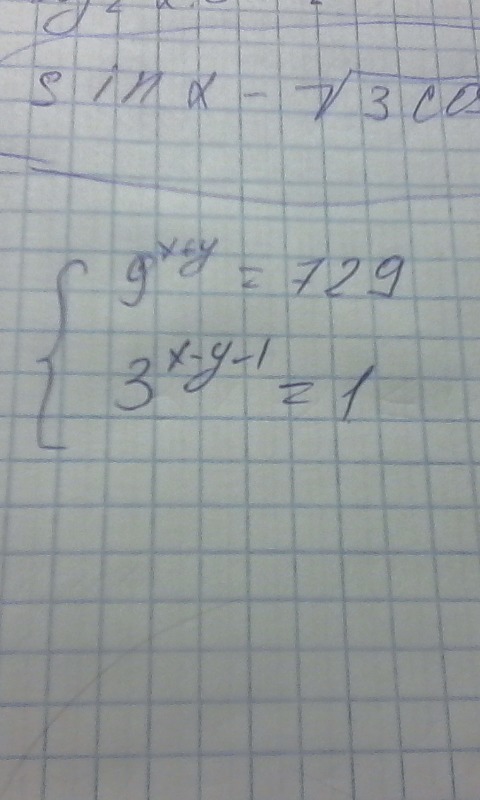 sin x - √3 co
{ 9^{x+y} = 729
3^{x-y-1} = 1